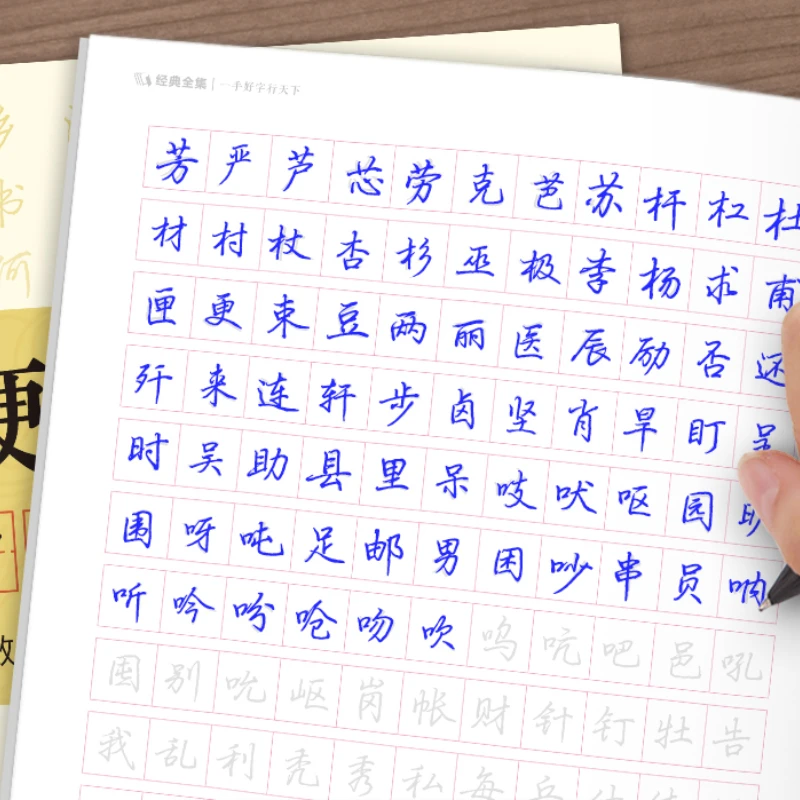 经典全集 | 一手好字行天下
芳严芦芯劳克芭苏杆杠杜
材村杖杏杉巫极李杨求甫
匣更束豆两丽医辰励否还
歼来连轩步卤坚肖旱盯呈
时吴助县里呆吱吠呕园
围呀吨足邮男困吵串员呐
听吟吩呛吻吹呜吭吧邑吼
囤别吮岖岗帐财针钉牡告
我乱利秃秀私每兵
书
何
更